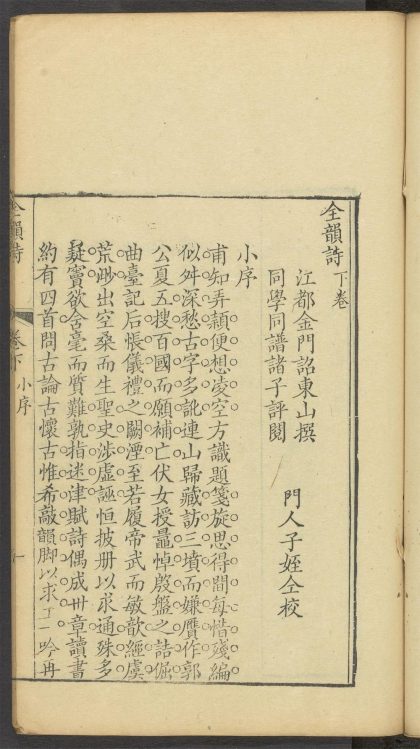 全韻詩下卷
江都金門詔東山撰
同學同譜諸子評閱
門人子姪仝校
小序
甫知弄穎便想凌空方識題箋旋思得間每惜殘編
似舛深愁古字多訛連山歸藏訪三墳而嫌贋作郭
公夏五搜百國而願補亡伏女授鼂悼殷盤之詰倔
曲臺記后悵儀禮之闕湮至若履帝武而敏歆經虞
荒眇出空桑而生聖史涉虛誣恒披册以求通殊多
疑竇欲含毫而質難孰指迷津賦詩偶成卅章讀書
約有四首問古論古懷古惟希敲韻脚以求工一吟再
全韻詩
卷下
小序
一